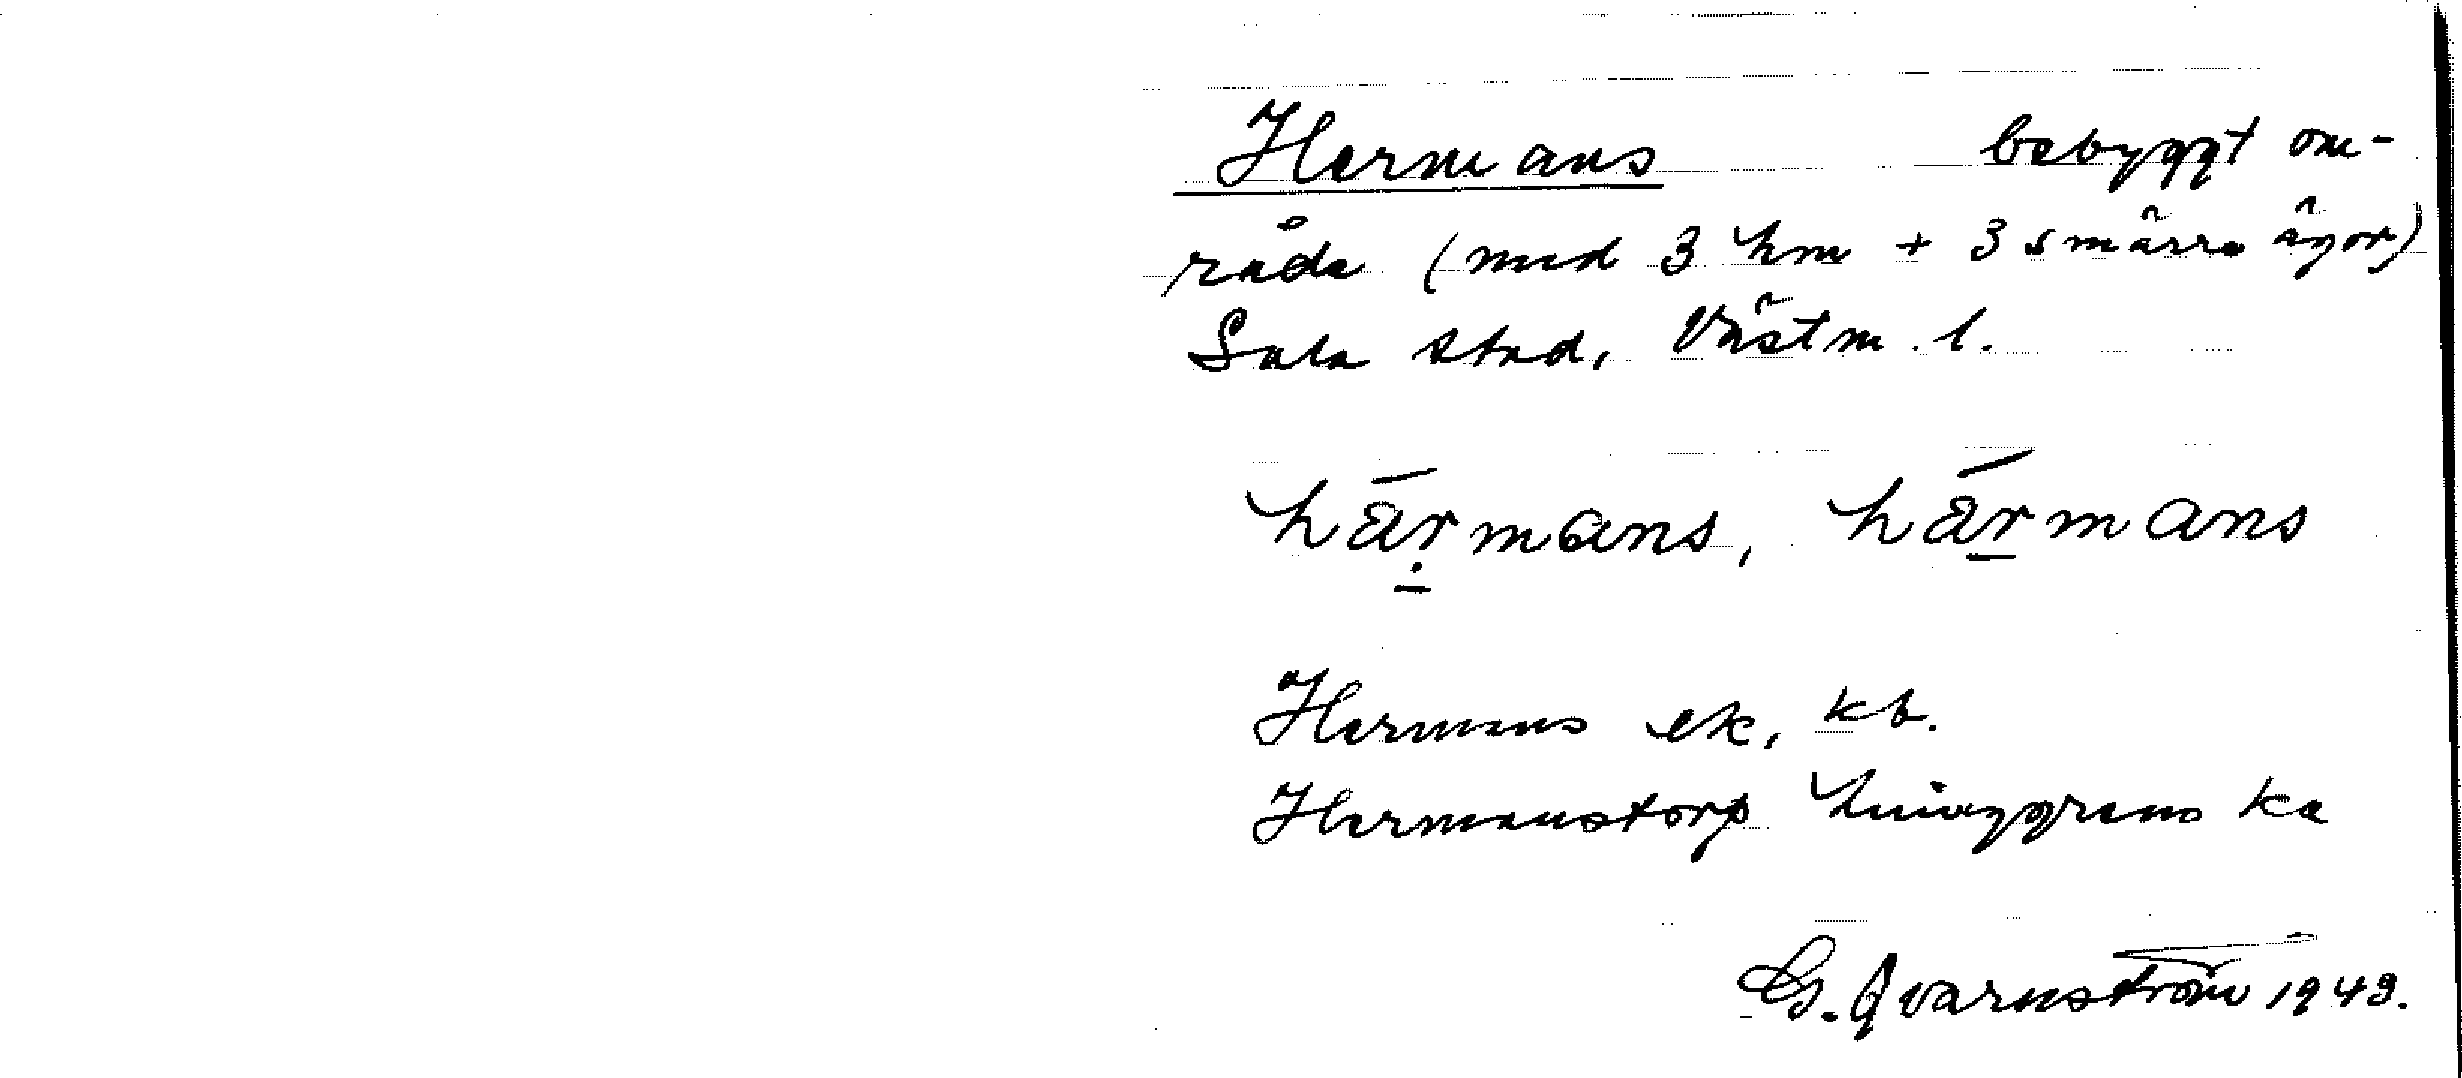 Hermans bebyggt om-
råde (med 3 hm + 3 smärre ägor)
Sala stad, Västm. l.
härmans, härmans
Hermans ek, kb.
Hermanstorp ka
G. Qvarnström 1949.